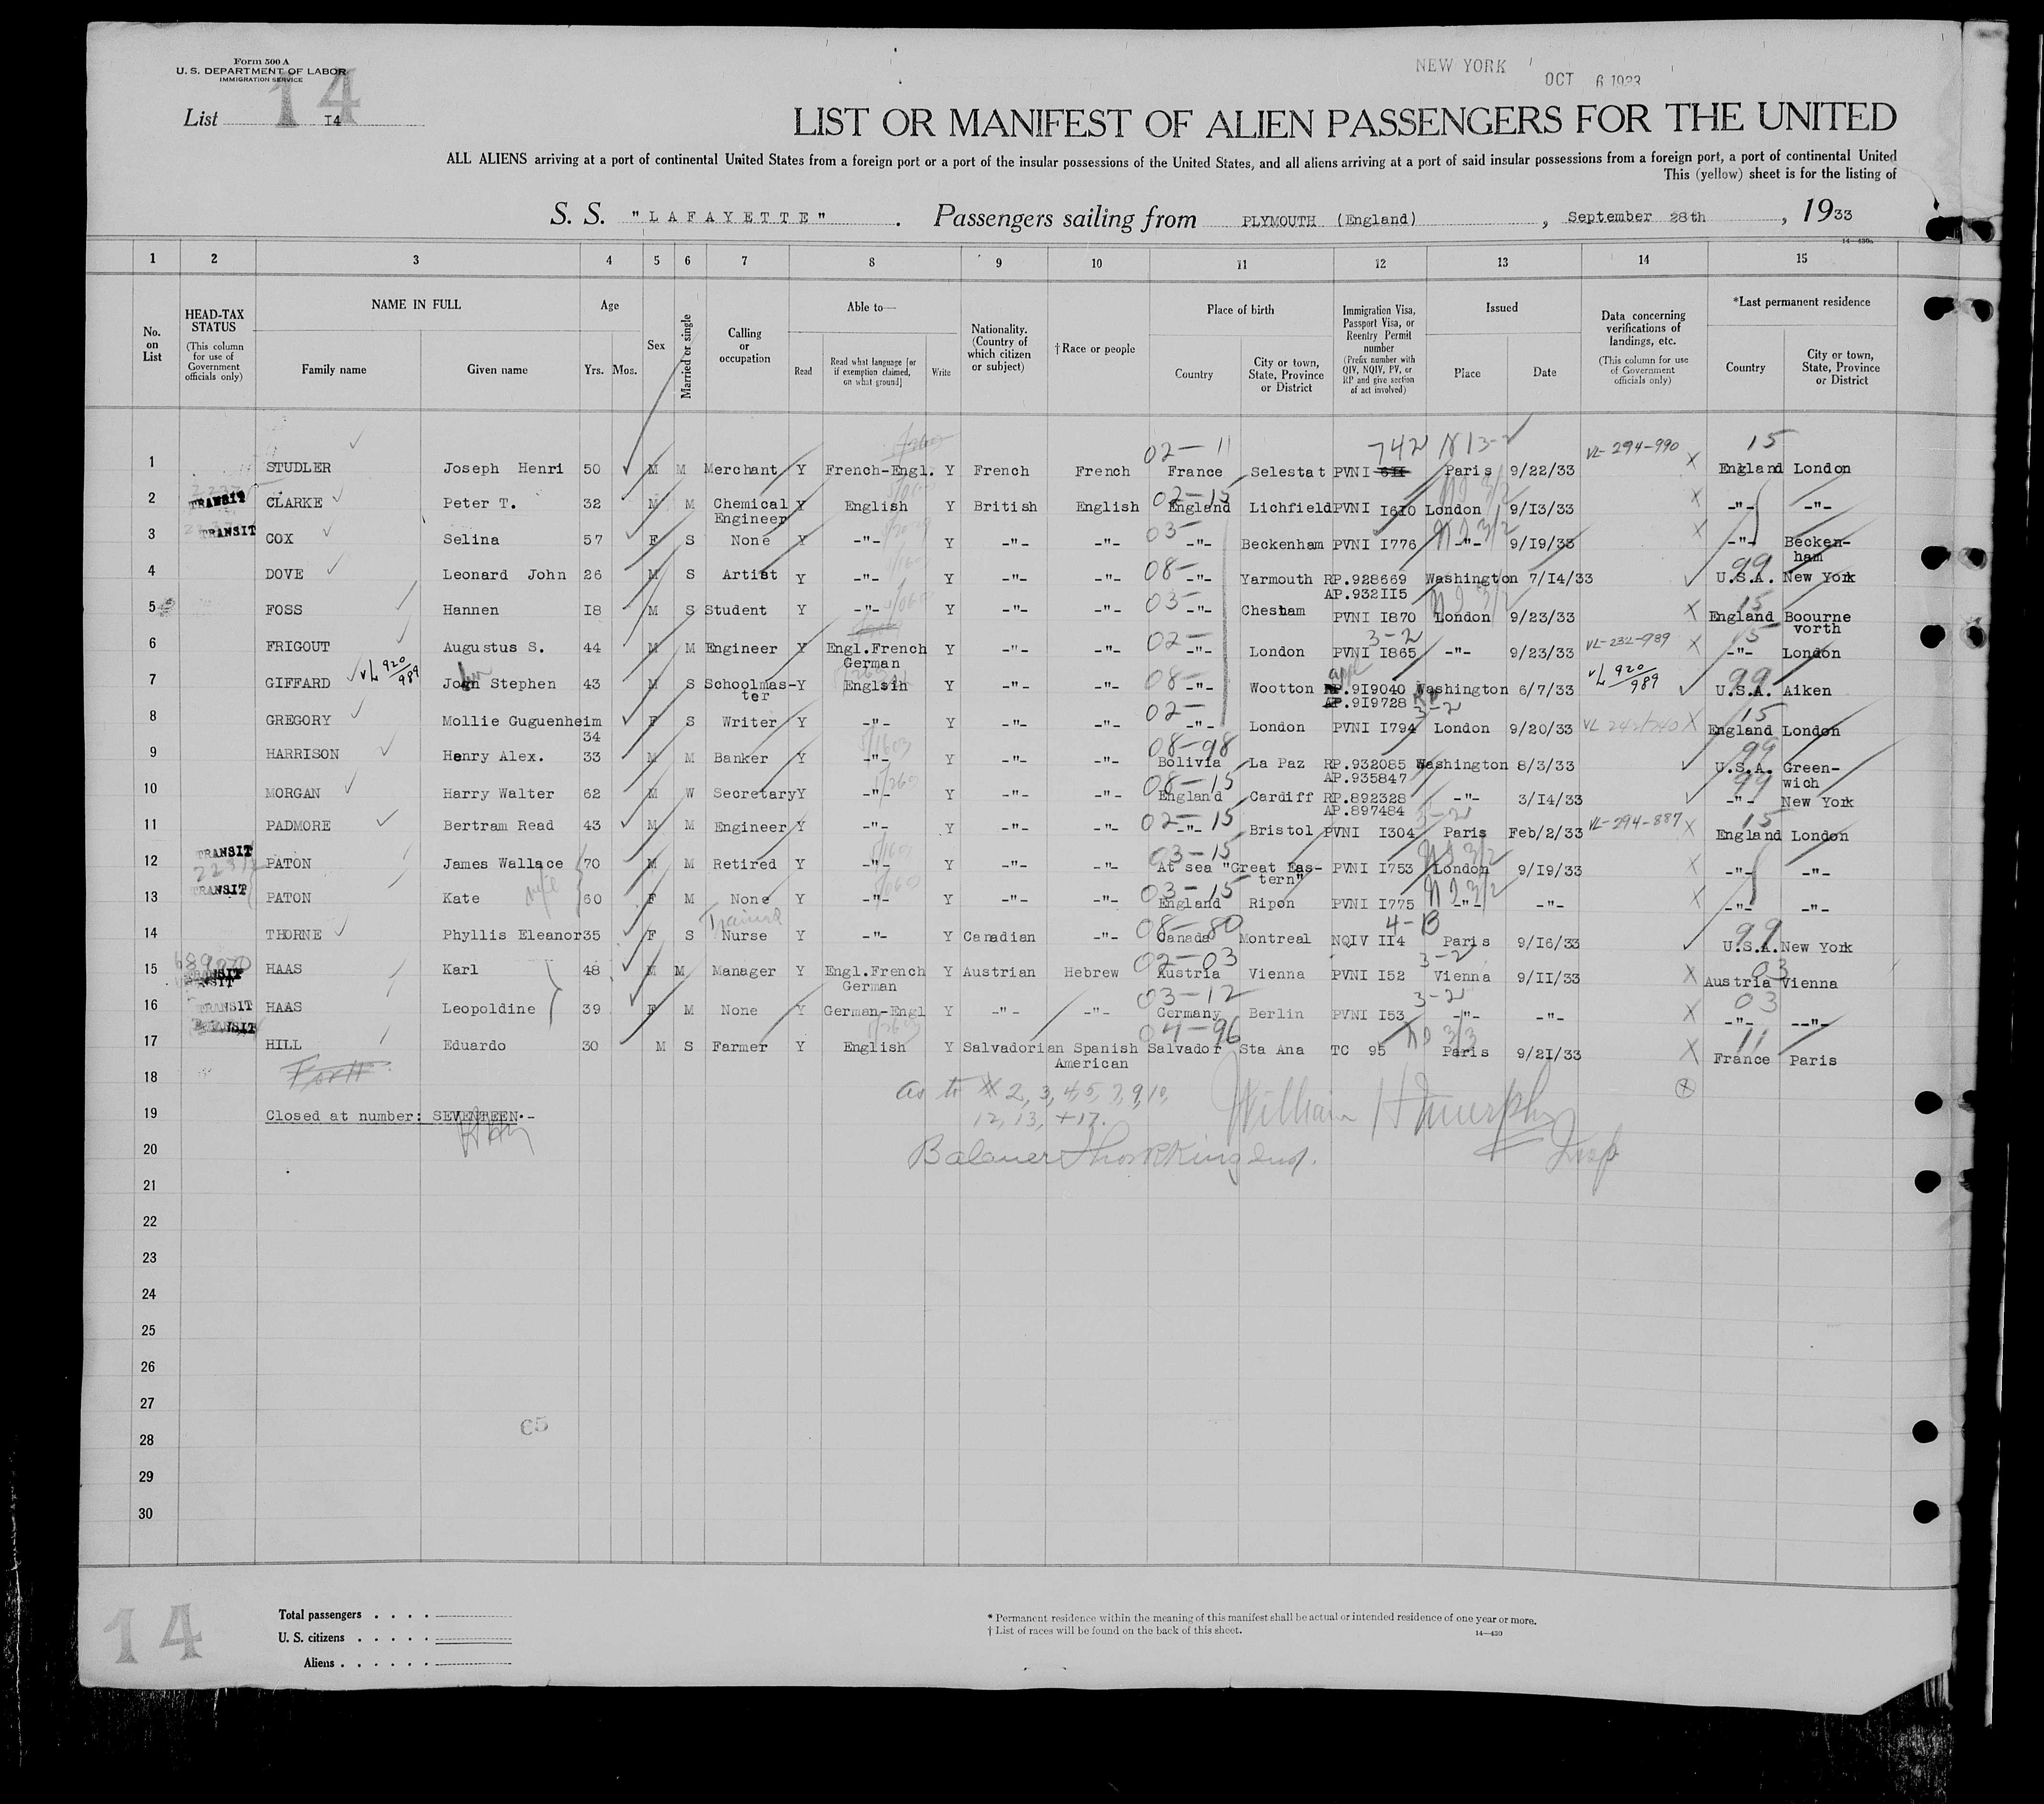 Form 500 A
U. S. DEPARTMENT OF LABOR
IMMIGRATION SERVICE
NEW YORK OCT 6 1933
List 14 I4
LIST OR MANIFEST OF ALIEN PASSENGERS FOR THE UNITED
ALL ALIENS arriving at a port of continental United States from a foreign port or a port of the insular possessions of the United States, and all aliens arriving at a port of said insular possessions from a foreign port, a port of continental United
This (yellow) sheet is for the listing of
S. S. "LAFAYETTE". Passengers sailing from PLYMOUTH (England), September 28th, 1933
14—430a
1 2 3 4 5 6 7 8 9 10 11 12 13 14 15
No. on List
HEAD-TAX STATUS (This column for use of Government officials only)
NAME IN FULL
Family name Given name
Age
Yrs. Mos.
Sex
Married or single
Calling or occupation
Able to—
Read Read what language [or if exemption claimed, on what ground] Write
Nationality. (Country of which citizen or subject)
†Race or people
Place of birth
Country City or town, State, Province or District
Immigration Visa, Passport Visa, or Reentry Permit number (Prefix number with QIV, NQIV, PV, or RP and give section of act involved)
Issued
Place Date
Data concerning verifications of landings, etc. (This column for use of Government officials only)
*Last permanent residence
Country City or town, State, Province or District
02-11 742 VL-294-990 15
1 STUDLER Joseph Henri 50 M M Merchant Y French-Engl. Y French French France Selestat PVNI 6II Paris 9/22/33 X England London
02-15
2 TRANSIT CLARKE Peter T. 32 M M Chemical Engineer Y English Y British English England Lichfield PVNI I6I0 London 9/I3/33 X -"- -"-
03-
3 TRANSIT COX Selina 57 F S None Y -"- Y -"- -"- -"- Beckenham PVNI I776 -"- 9/I9/33 X -"- Beckenham
08- 99
4 DOVE Leonard John 26 M S Artist Y -"- Y -"- -"- -"- Yarmouth RP.928669 AP.932II5 Washington 7/I4/33 U.S.A. New York
03- 15
5 FOSS Hannen I8 M S Student Y -"- Y -"- -"- -"- Chesham PVNI I870 London 9/23/33 X England Boourne vorth
02- 3-2 VL-232-989 15
6 FRIGOUT Augustus S. 44 M M Engineer Y Engl.French German Y -"- -"- -"- London PVNI I865 -"- 9/23/33 X -"- London
08- VL 920/989 99
7 GIFFARD VL 920/989 John Stephen 43 M S Schoolmas-ter Y Englsih Y -"- -"- -"- Wootton RP.9I9040 AP.9I9728 Washington 6/7/33 U.S.A. Aiken
02- 3-2 15
8 GREGORY Mollie Guguenheim 34 F S Writer Y -"- Y -"- -"- -"- London PVNI I794 London 9/20/33 X England London
08-98 99
9 HARRISON Henry Alex. 33 M M Banker Y -"- Y -"- -"- Bolivia La Paz RP.932085 AP.935847 Washington 8/3/33 U.S.A. Green-wich
08-15 99
10 MORGAN Harry Walter 62 M W Secretary Y -"- Y -"- -"- England Cardiff RP.892328 AP.897484 -"- 3/I4/33 -"- New York
02-15 3-2 VL-294-887 15
11 PADMORE Bertram Read 43 M M Engineer Y -"- Y -"- -"- -"- Bristol PVNI I304 Paris Feb/2/33 X England London
03-15
12 TRANSIT PATON James Wallace 70 M M Retired Y -"- Y -"- -"- At sea "Great Eas-tern" PVNI I753 London 9/I9/33 X -"- -"-
03-15
13 TRANSIT PATON Kate wife 60 F M None Y -"- Y -"- -"- England Ripon PVNI I775 -"- -"- X -"- -"-
Trained 08-80 4-B 99
14 THORNE Phyllis Eleanor 35 F S Nurse Y -"- Y Canadian -"- Canada Montreal NQIV II4 Paris 9/I6/33 U.S.A. New York
02-03 3-2 03
15 TRANSIT HAAS Karl 48 M M Manager Y Engl.French German Y Austrian Hebrew Austria Vienna PVNI I52 Vienna 9/II/33 X Austria Vienna
03-12 3-2 03
16 TRANSIT HAAS Leopoldine 39 F M None Y German-Engl Y -"- -"- Germany Berlin PVNI I53 -"- -"- X -"- --"-
04-96 11
17 TRANSIT HILL Eduardo 30 M S Farmer Y English Y Salvadorian Spanish American Salvador Sta Ana TC 95 Paris 9/2I/33 X France Paris
18
as to # 2, 3, 4, 5, 7, 9, 10,
19 Closed at number: SEVENTEEN.-
12, 13, + 17. William H Murphy
20
Insp
21
22
23
24
25
26
27
28
65
29
30
14
Total passengers
U. S. citizens
Aliens
* Permanent residence within the meaning of this manifest shall be actual or intended residence of one year or more.
† List of races will be found on the back of this sheet.
14—430